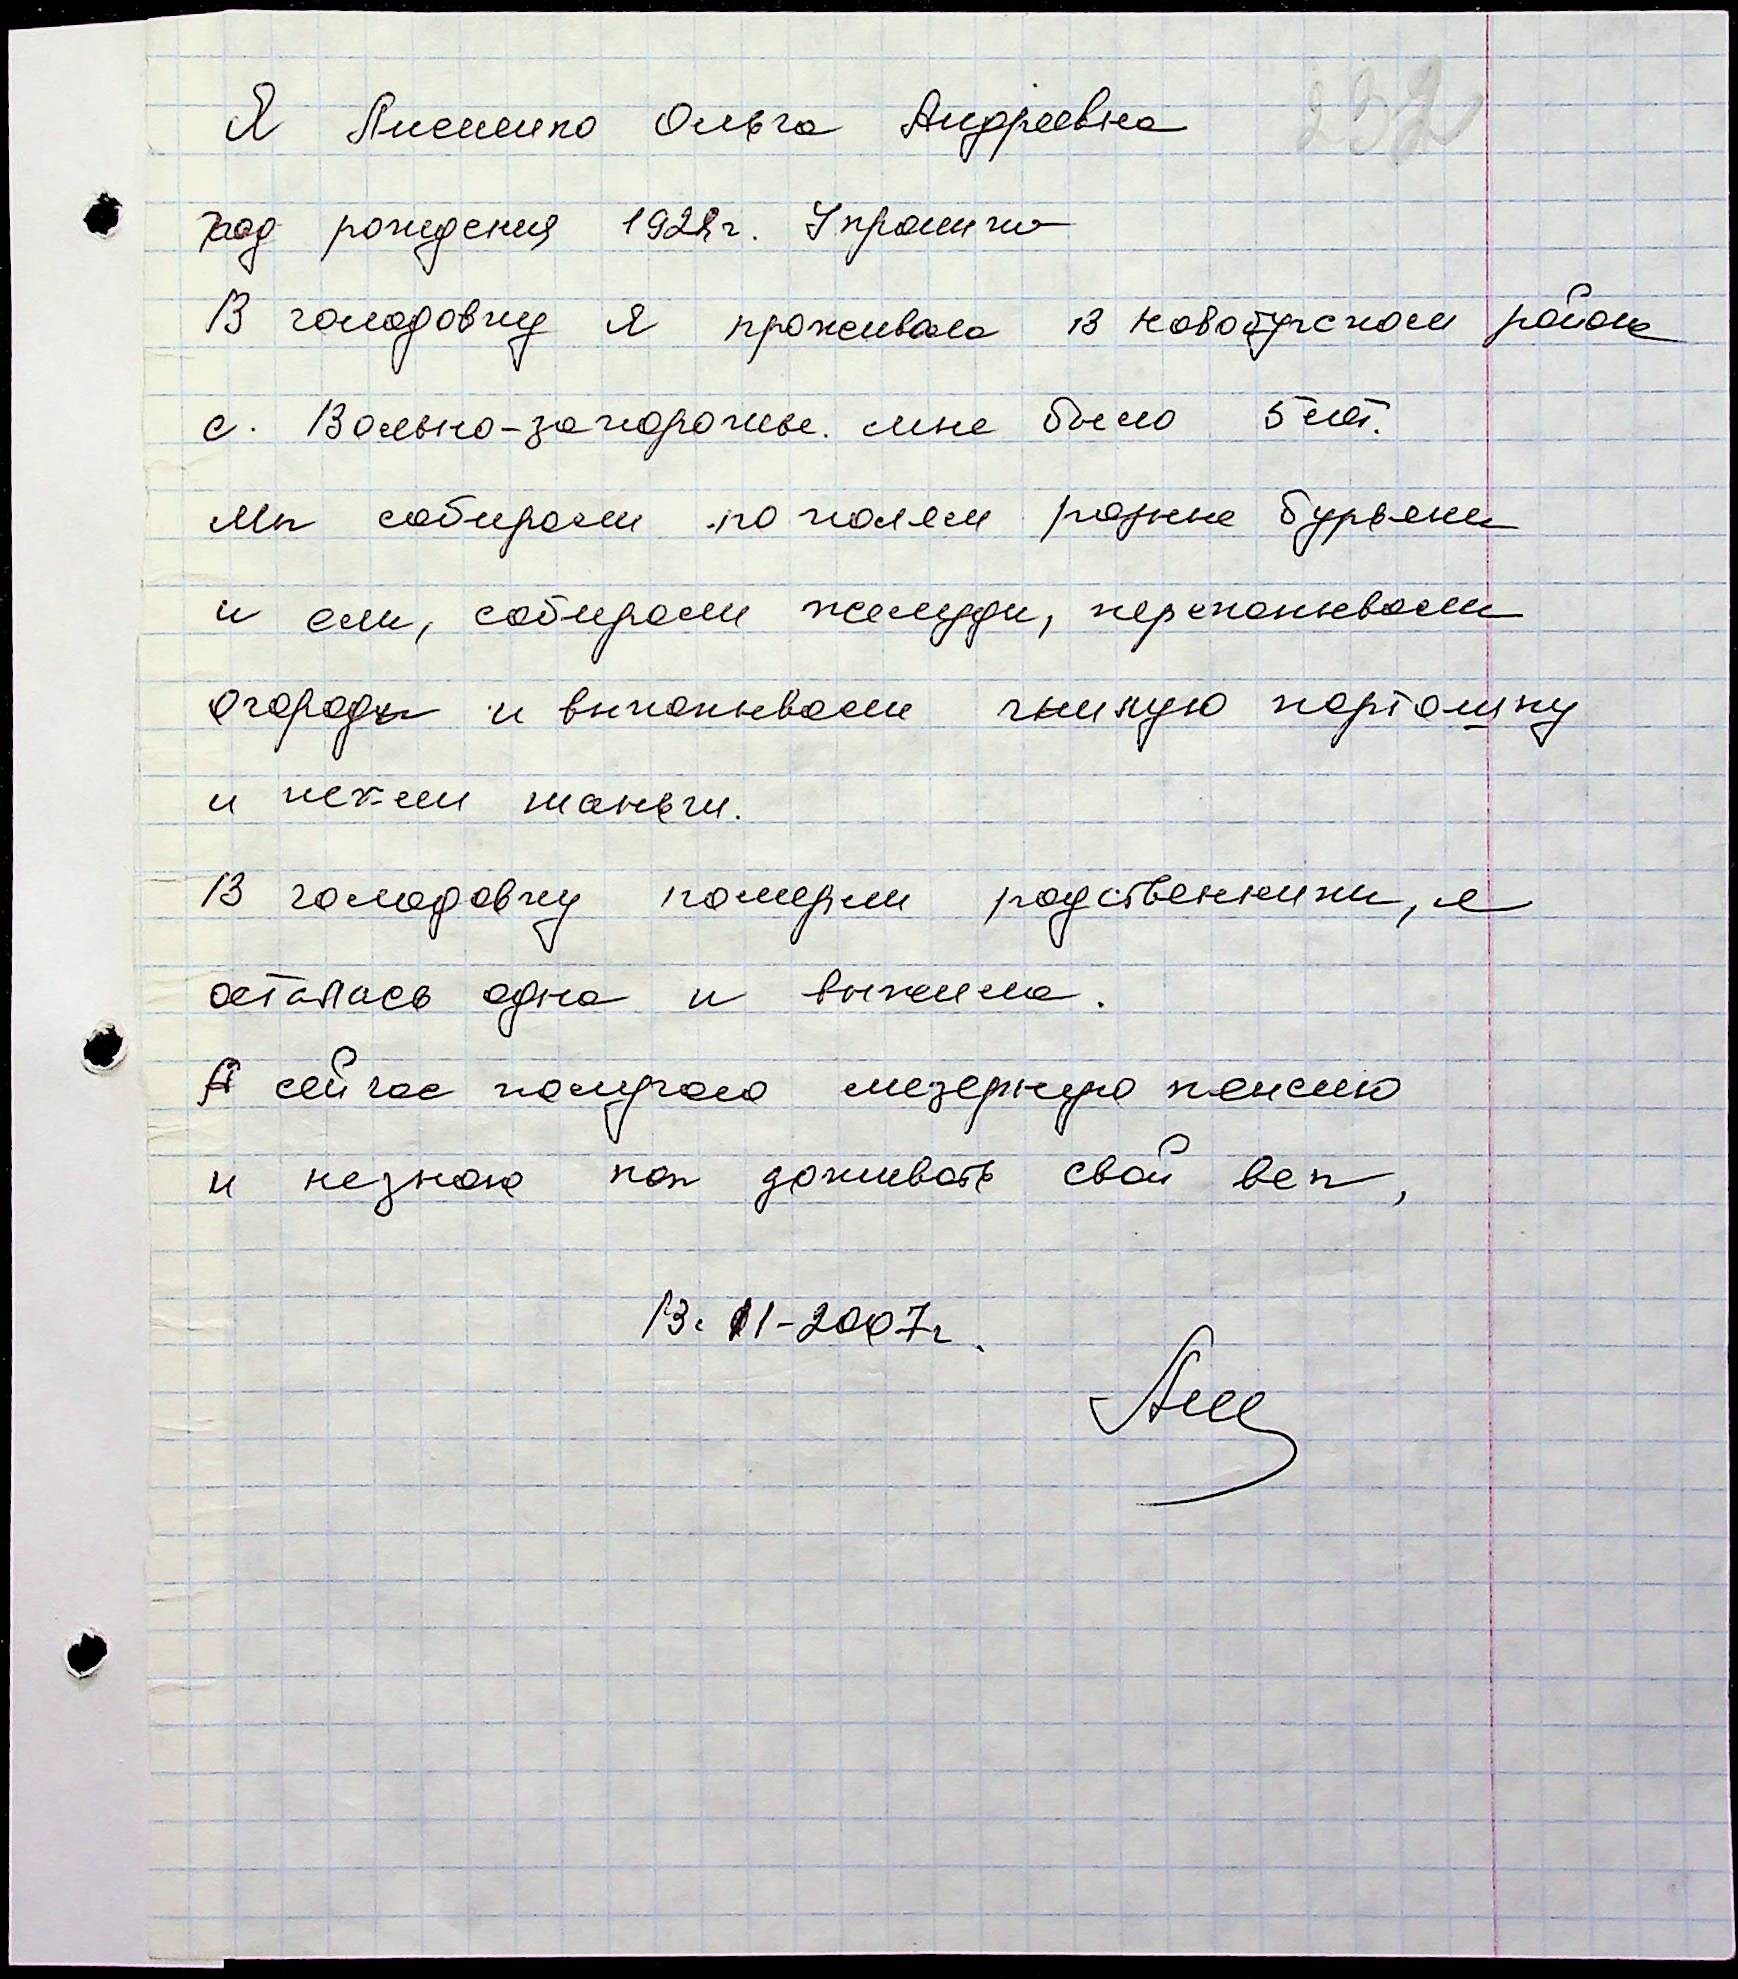 232
Я Лисишко Ольга Андреевна
год рождения 1928г. Украинко
В голодовку я проживала в Новобугском районе
с. Вольно-запорожье. мне было 5 лет.
Мы собирали по полям разные бурьяны
и ели, собирали желуди, перекапывали
огороды и выкапывали гнилую картошку
и пекли маньги.
В голодовку померли родственники, я
осталась одна и выжила.
А сейчас получаю мезерную пенсию
и незнаю как доживать свой век,
13. 11-2007г.